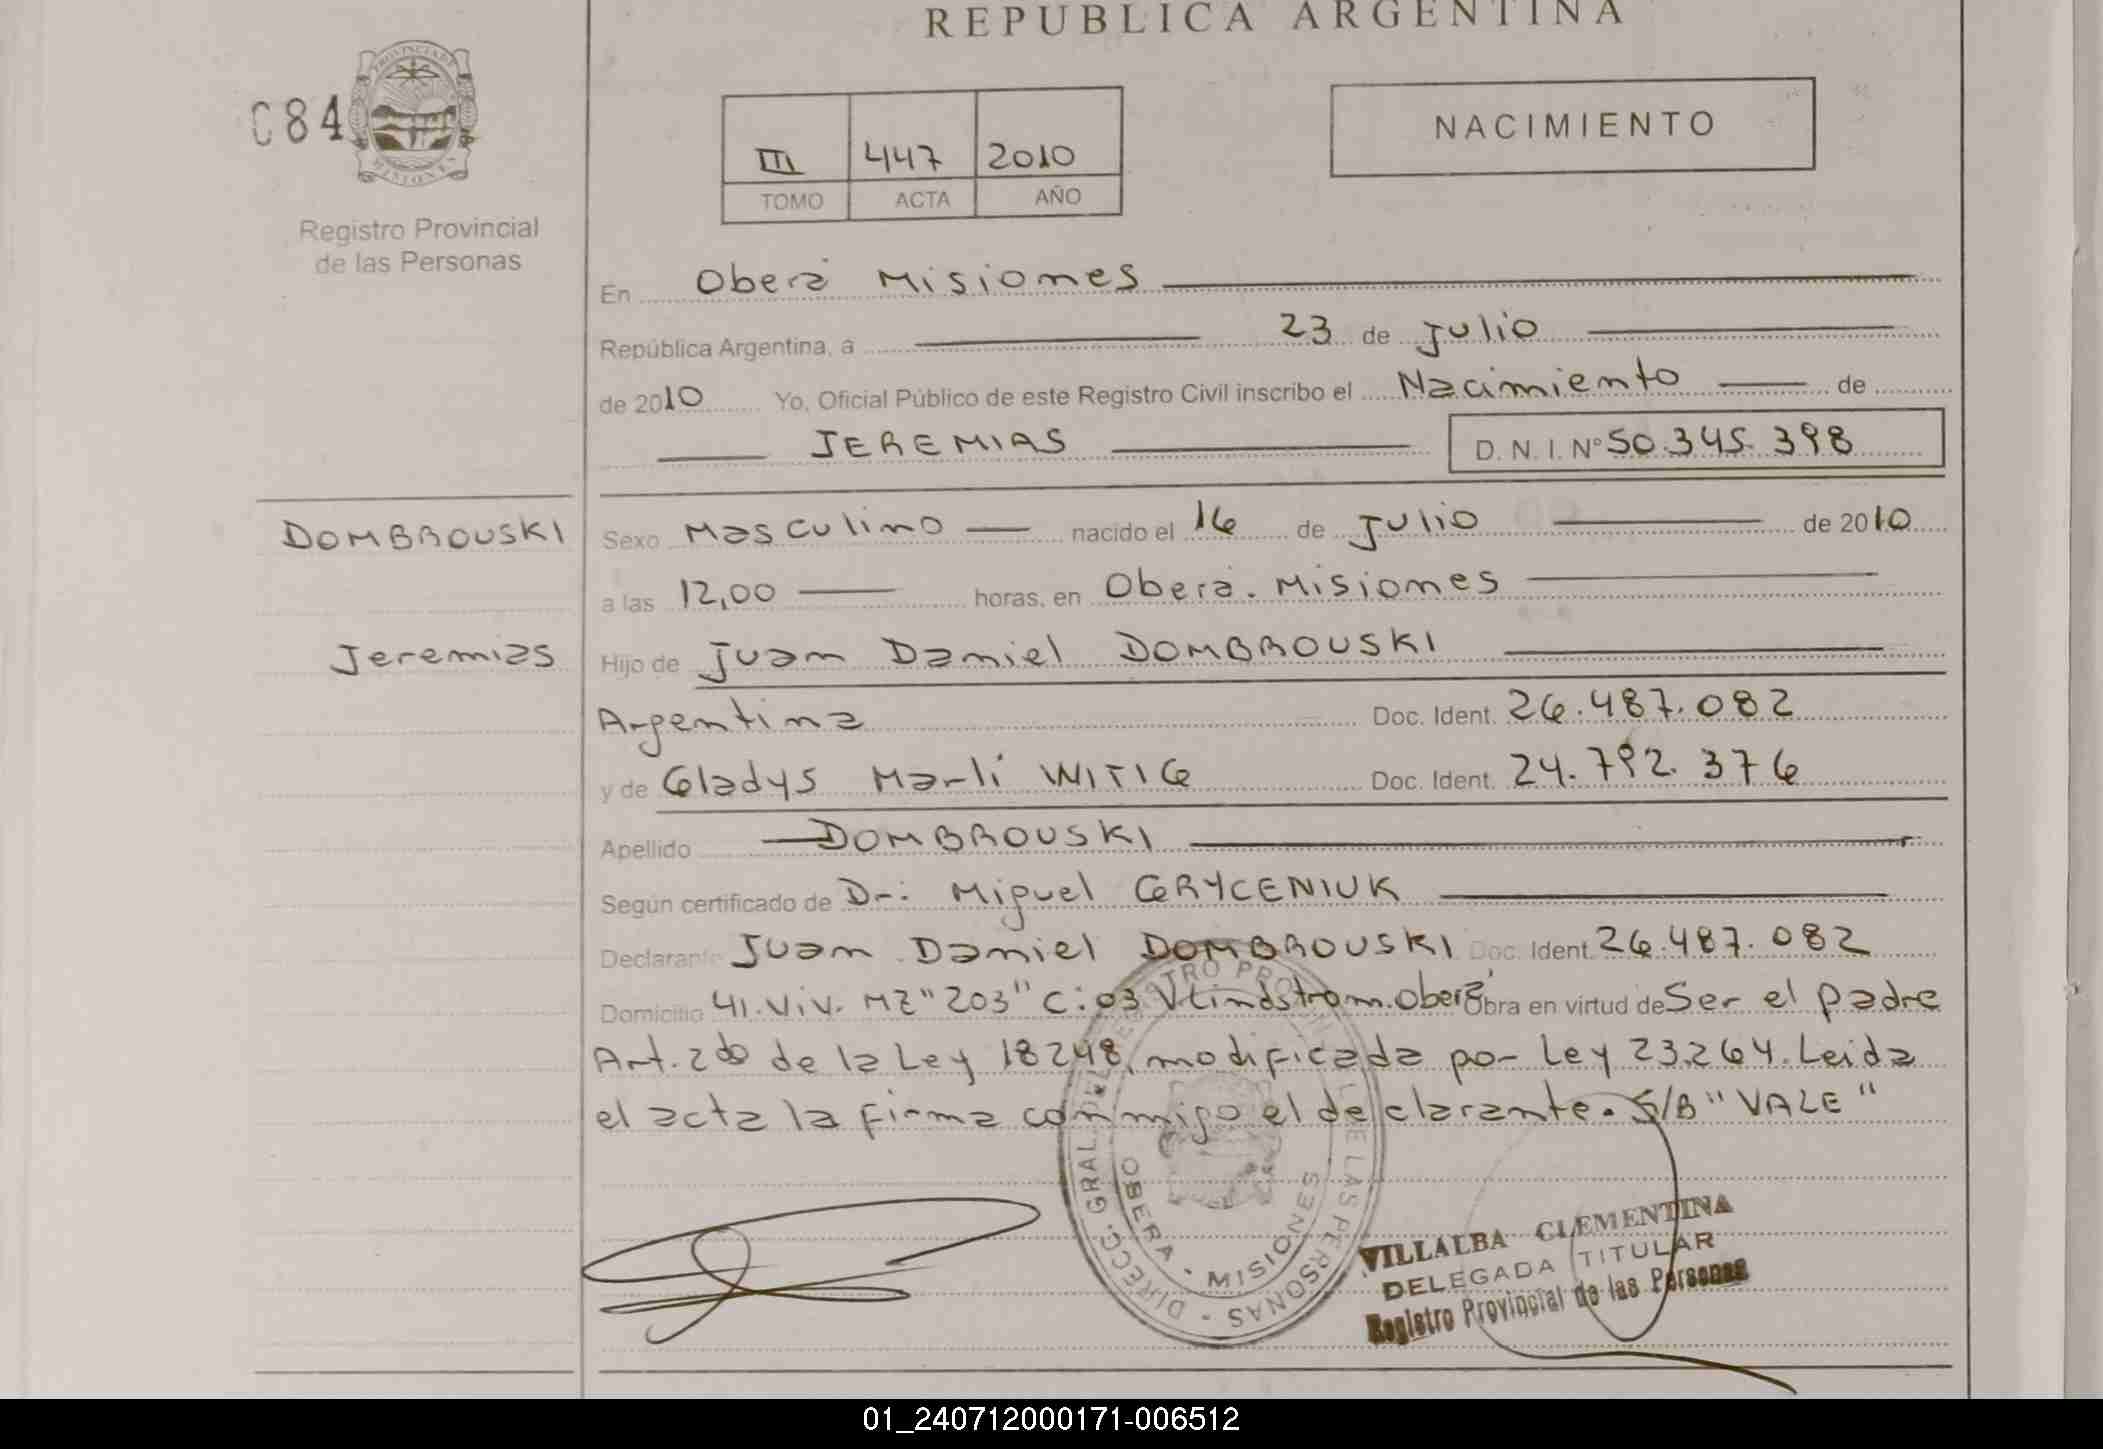 REPUBLICA ARGENTINA
C84
PROVINCIA DE
MISIONES
Registro Provincial
de las Personas
III 447 2010
TOMO ACTA AÑO
NACIMIENTO
En Oberá Misiones
República Argentina, a 23 de Julio
de 2010 Yo, Oficial Público de este Registro Civil inscribo el Nacimiento de
JEREMIAS D.N.I.Nº 50.345.398
DOMBROUSKI
Sexo Masculino nacido el 16 de Julio de 2010
a las 12,00 horas, en Oberá. Misiones
Jeremias
Hijo de Juan Daniel DOMBROUSKI
Argentina Doc. Ident. 26.487.082
y de Gladys Marli WITIG Doc. Ident. 24.792.376
Apellido DOMBROUSKI
Según certificado de Dr: Miguel GRYCENIUK
Declarante Juan Daniel DOMBROUSKI Doc. Ident. 26.487.082
Domicilio 41.Viv. MZ"203" C:03 Vlindstrom.Oberá, Obra en virtud de Ser el padre
Art. 2do de la Ley 18248, modificada por Ley 23.264. Leida
el acta la firma conmigo el declarante. S/B "VALE"
DIRECC. GRAL. DEL REGISTRO PROVINCIAL DE LAS PERSONAS
OBERA - MISIONES
VILLALBA CLEMENTINA
DELEGADA TITULAR
Registro Provincial de las Personas
01_240712000171-006512